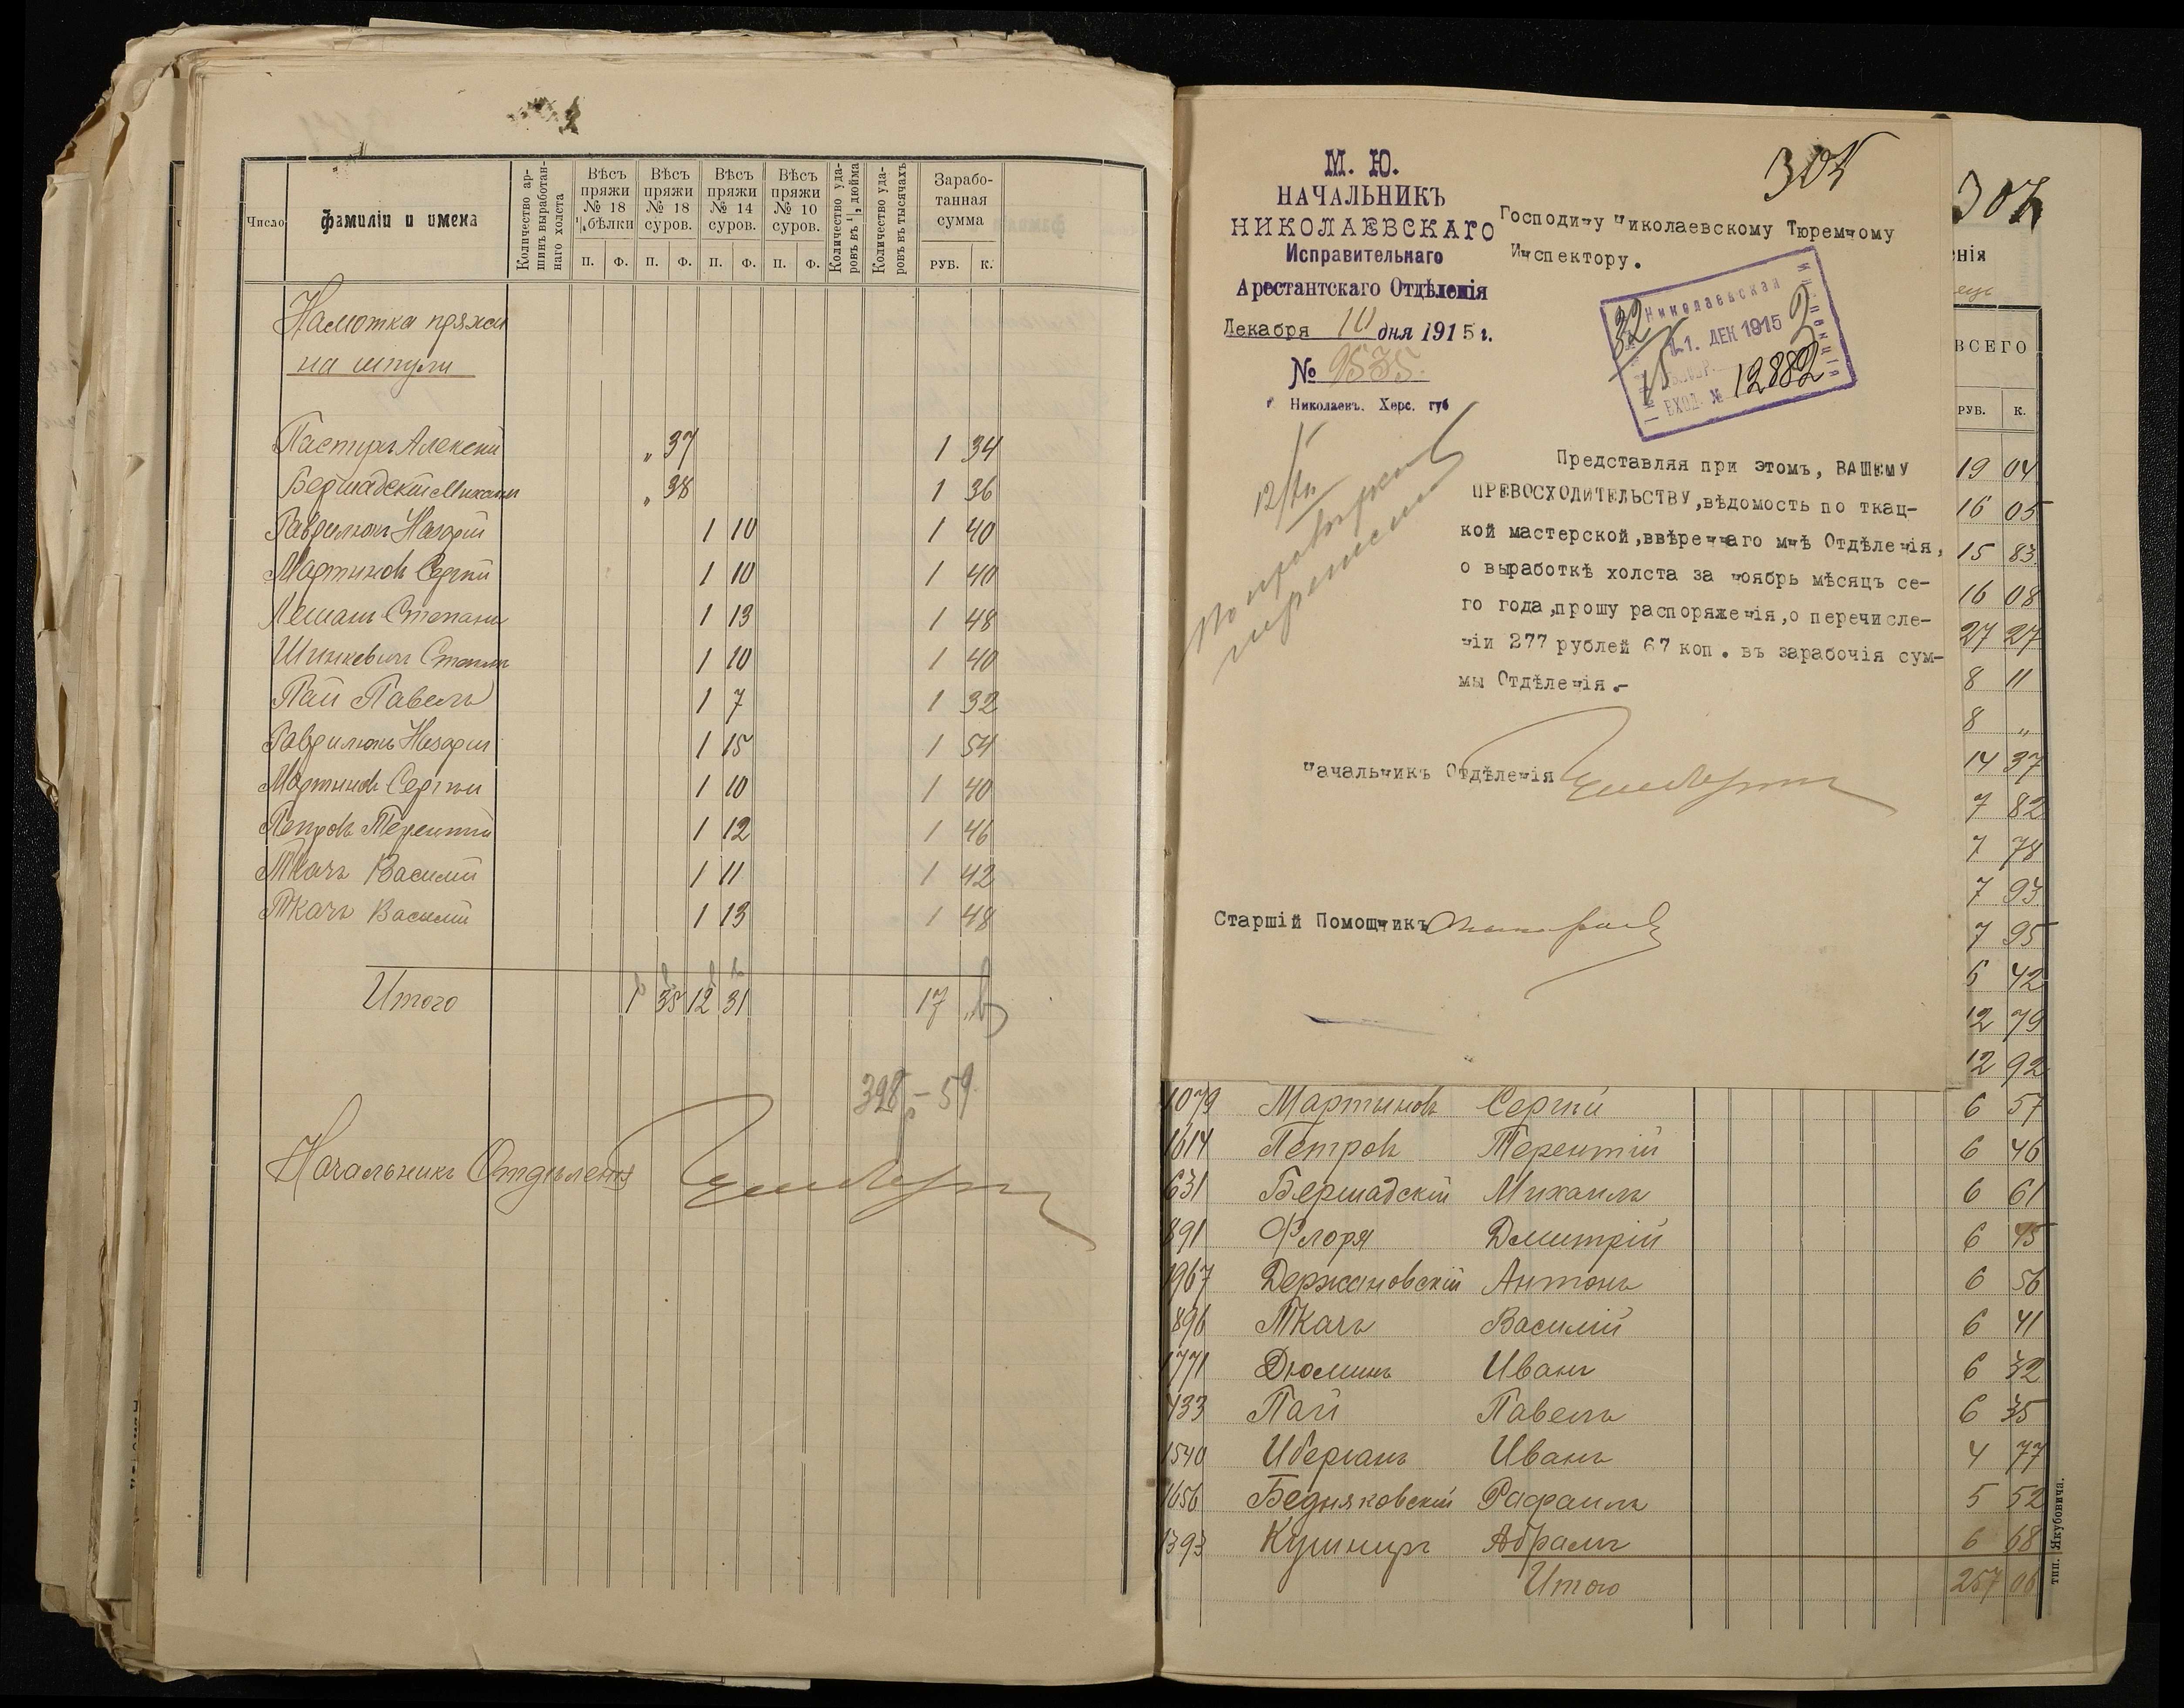 Число
фамиліи и имена
Количество ар-
шинъ выработан-
наго холста
Вѣсъ пряжи № 18 ¼бѣлки
Вѣсъ пряжи № 18 суров.
Вѣсъ пряжи № 14 суров.
Вѣсъ пряжи № 10 суров.
Количество уда-
ровъ въ 1, дюйма
Количество уда-
ровъ въ тысячахъ
Зарабо-
танная
сумма
П. Ф. П. Ф. П. Ф. П. Ф. РУБ. К.
Намотка пряжи
на шпули
Пастухъ Алексѣй „ 37 1 34
Бершадскій Михаилъ „ 38 1 36
Гаврилюкъ Назарій 1 10 1 40
Мартыновъ Сергѣй 1 10 1 40
Лешанъ Степанъ 1 13 1 48
Шинкевичъ Степанъ 1 10 1 40
Пай Павелъ 1 7 1 32
Гаврилюкъ Назарій 1 15 1 54
Мартыновъ Сергѣй 1 10 1 40
Петровъ Терентій 1 12 1 46
Ткачъ Василій 1 11 1 42
Ткачъ Василій 1 13 1 48
Итого 1 35 12 31 17 „
398 р - 59
Начальникъ Отдѣленія
М. Ю.
НАЧАЛЬНИКЪ
НИКОЛАЕВСКАГО
Исправительнаго
Арестантскаго Отдѣленія
Декабря 10 дня 1915 г.
№ 9535.
г. Николаевъ. Херс. губ
305
Господину Николаевскому Тюремному
Инспектору.
Николаевская
11. ДЕК 1915
ВХОД. № 12882
32
2
По провѣркѣ
перечислить
Представляя при этомъ, ВАШЕМУ
ПРЕВОСХОДИТЕЛЬСТВУ, вѣдомость по ткац-
кой мастерской, ввѣреннаго мнѣ Отдѣленія,
о выработкѣ холста за ноябрь мѣсяцъ се-
го года, прошу распоряженія, о перечисле-
ніи 277 рублей 67 коп. въ зарабочія сум-
мы Отдѣленія.-
Начальникъ Отдѣленія
Старшій Помощникъ
307
нія
ВСЕГО
РУБ. К.
19 04
16 05
15 83
16 08
27 27
8 11
8 „
14 37
7 82
7 78
7 93
7 95
5 42
12 79
12 92
1079 Мартыновъ Сергѣй 6 57
1614 Петровъ Терентій 6 46
631 Бершадскій Михаилъ 6 61
891 Флоря Дмитрій 6 45
1967 Держановскій Антонъ 6 56
896 Ткачъ Василій 6 41
1771 Дюминъ Иванъ 6 32
733 Пай Павелъ 6 35
1540 Иберганъ Иванъ 4 77
1656 Бедняковскій Рафаилъ 5 52
1393 Кушниръ Абрамъ 6 68
Итого 257 06
тип. Якубовича.